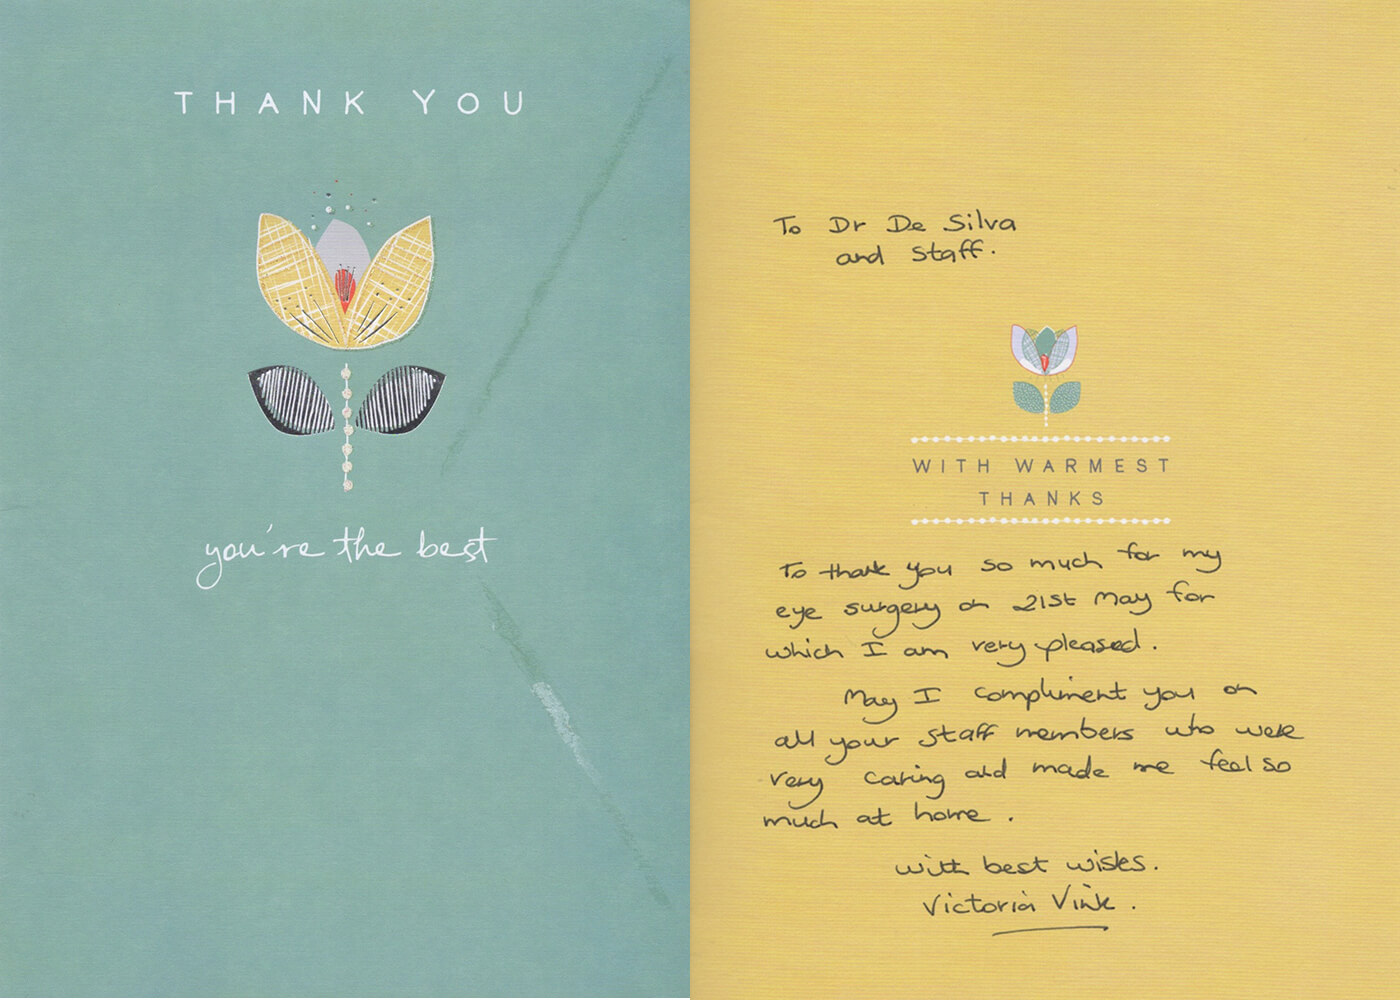 THANK YOU
you're the best
To Dr De Silva
and Staff.
WITH WARMEST
THANKS
To thank you so much for my
eye surgery on 21st May for
which I am very pleased.
May I compliment you on
all your staff members who were
very caring and made me feel so
much at home.
With best wishes.
Victoria Vink.